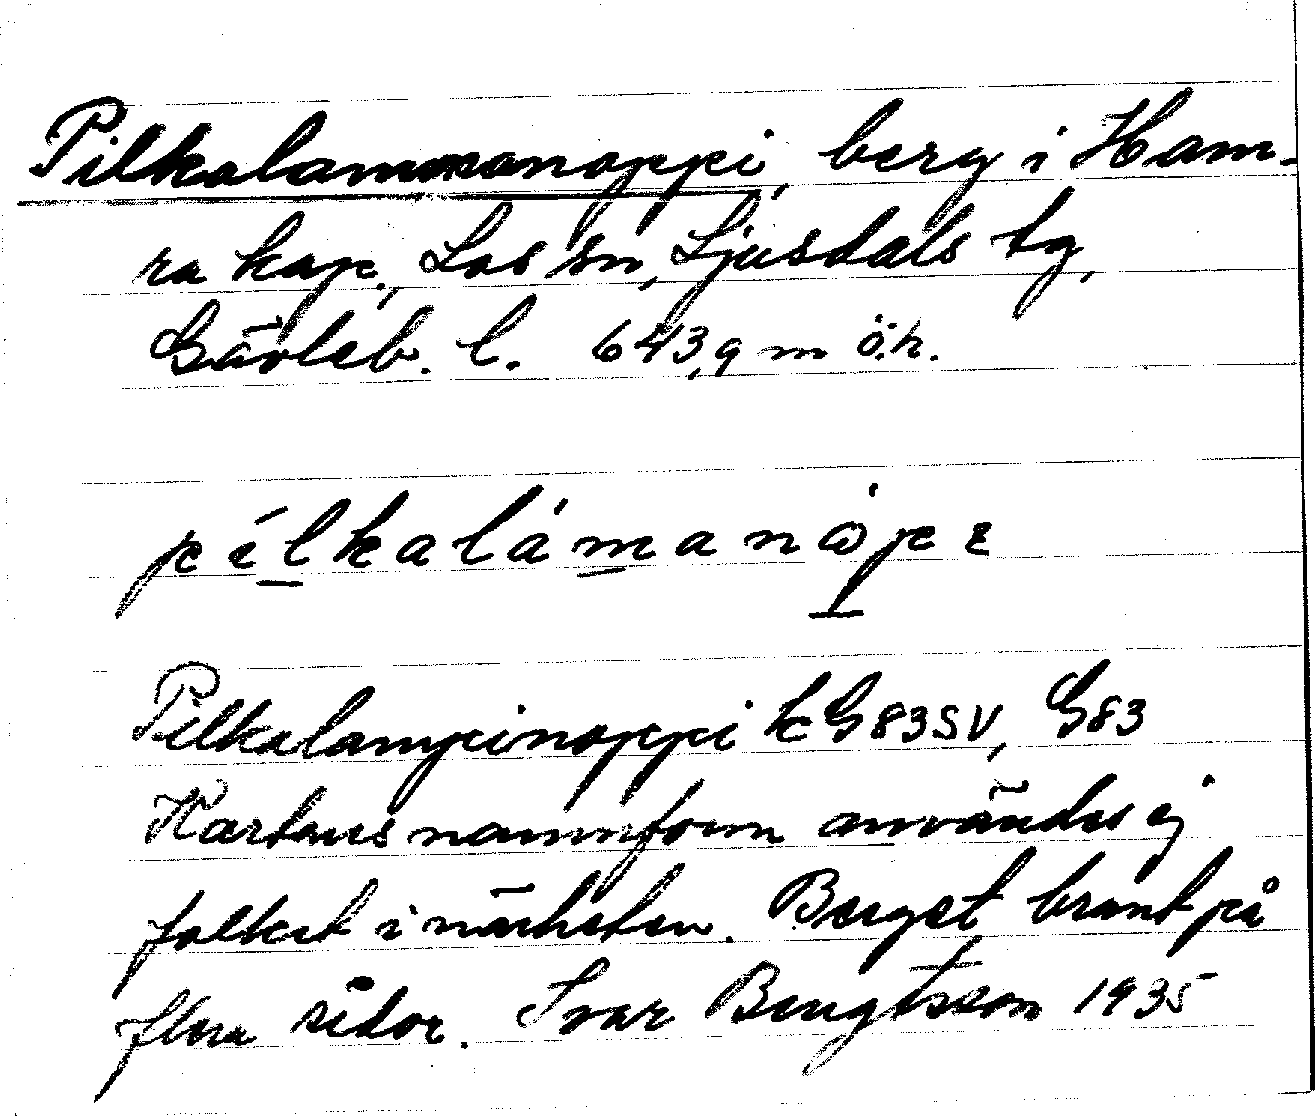 Pilkalammanoppi, berg i Ham-
ra kap., Los sn, Ljusdals tg,
Gävleb. l. 643,9 m ö.h.
Pilkalampinoppi kG83SV, G83
Kartans namnform användes ej
folket i närheten. Berget brant på
flera sidor. Ivar Bengtsson 1935